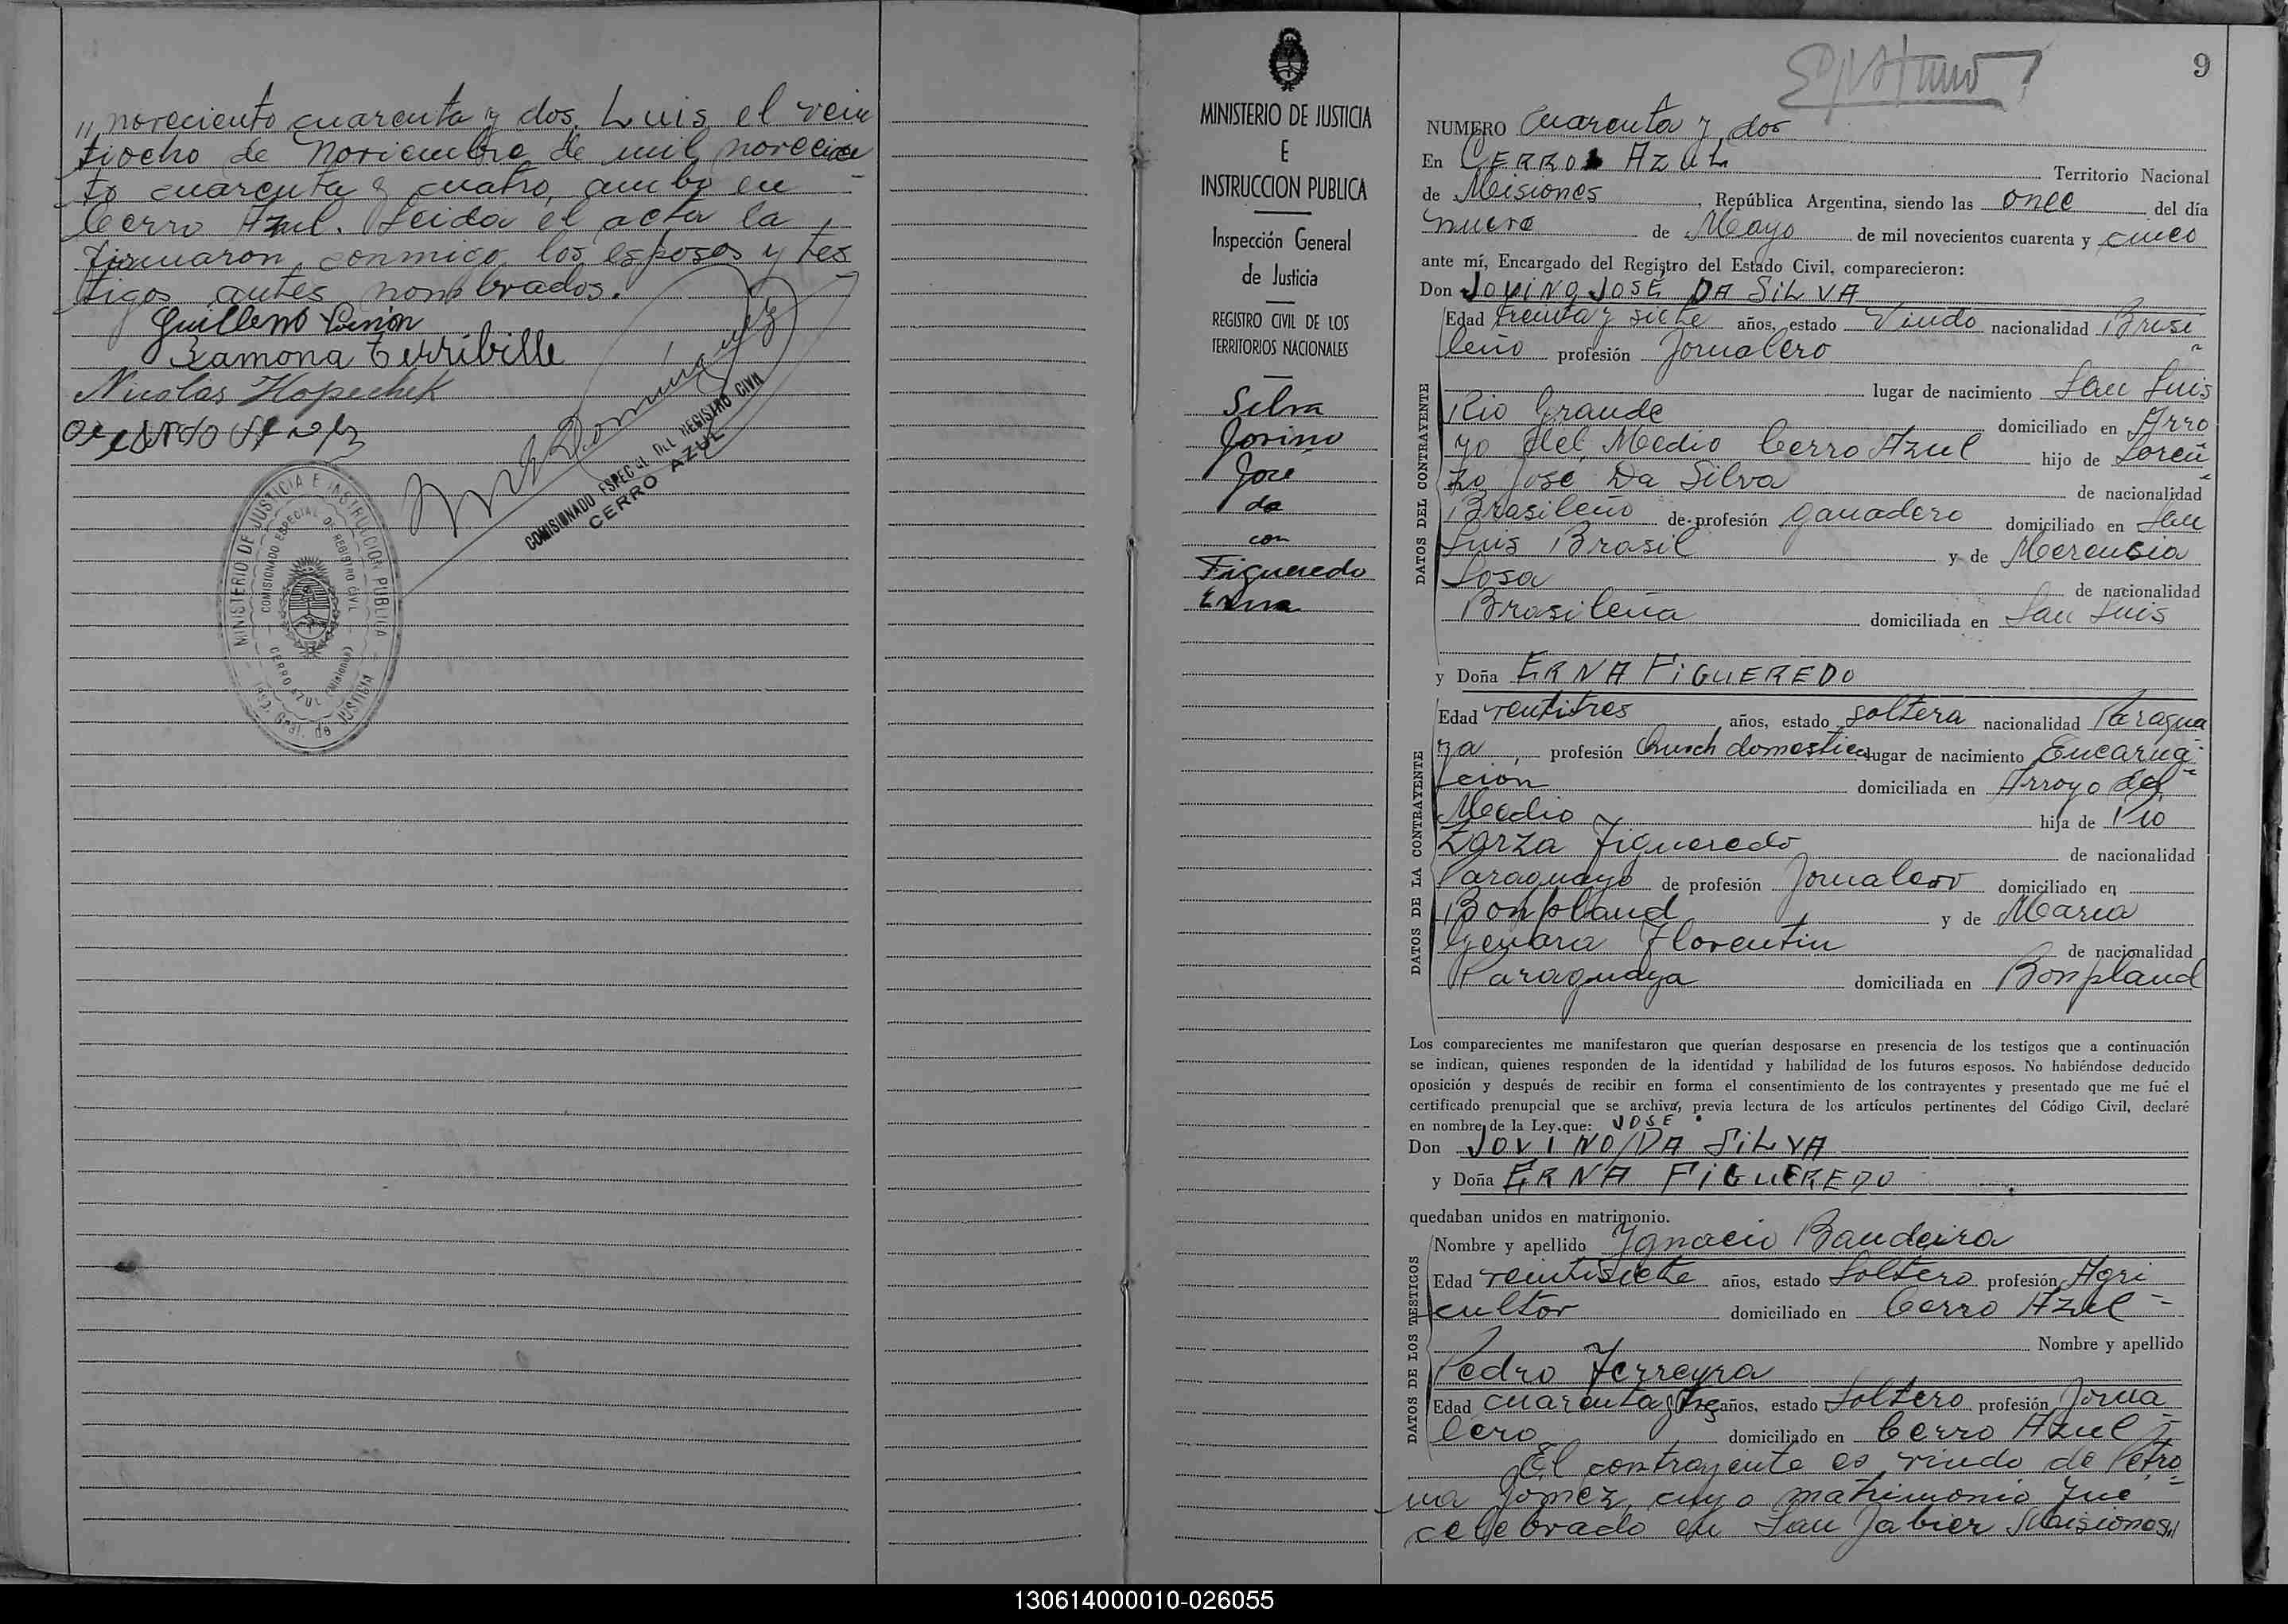 " noveciento cuarenta y dos. Luis el vein
tiocho de Noviembre de mil novecien
to cuarenta y cuatro, ambo en
Cerro Azul. Leida el acta la
firmaron conmigo los esposos y tes
tigos antes nombrados.
Guillermo
Ramona Terribille
Nicolas Hopechek
COMISIONADO ESPECIAL DEL REGISTRO CIVIL
CERRO AZUL
MINISTERIO DE JUSTICIA E INSTRUCCION PUBLICA
COMISIONADO ESPECIAL DE REGISTRO CIVIL
CERRO AZUL (Misiones)
Insp. Gral. de Justicia
MINISTERIO DE JUSTICIA
E
INSTRUCCION PUBLICA
Inspección General
de Justicia
REGISTRO CIVIL DE LOS
TERRITORIOS NACIONALES
Silva
Jovino
José
da
con
Figueredo
Erna
9
NUMERO Cuarenta y dos
En CERRO AZUL Territorio Nacional
de Misiones, República Argentina, siendo las once del día
nueve de Mayo de mil novecientos cuarenta y cinco
ante mí, Encargado del Registro del Estado Civil, comparecieron:
Don JOVINO JOSÉ DA SILVA
DATOS DEL CONTRAYENTE
Edad treinta y siete años, estado Viudo nacionalidad Brasi
leño profesión Jornalero
lugar de nacimiento San Luis
Rio Grande domiciliado en Arro
yo del Medio Cerro Azul hijo de Loren
zo José Da Silva de nacionalidad
Brasileño de profesión ganadero domiciliado en San
Luis Brasil y de Merencia
Sosa de nacionalidad
Brasileña domiciliada en San Luis
y Doña ERNA FIGUEREDO
DATOS DE LA CONTRAYENTE
Edad ventitres años, estado soltera nacionalidad Paragua
ya, profesión domestica lugar de nacimiento Encarna
cion domiciliada en Arroyo del
Medio hija de Pio
Zarza Figueredo de nacionalidad
Paraguayo de profesión Jornalero domiciliado en
Bonpland y de Maria
Genara Florentin de nacionalidad
Paraguaya domiciliada en Bonpland
Los comparecientes me manifestaron que querían desposarse en presencia de los testigos que a continuación
se indican, quienes responden de la identidad y habilidad de los futuros esposos. No habiéndose deducido
oposición y después de recibir en forma el consentimiento de los contrayentes y presentado que me fué el
certificado prenupcial que se archiva, previa lectura de los artículos pertinentes del Código Civil, declaré
en nombre de la Ley que: JOSE
Don JOVINO/DA SILVA
y Doña ERNA FIGUEREDO
quedaban unidos en matrimonio.
DATOS DE LOS TESTIGOS
Nombre y apellido Ygnacio Bandeira
Edad veintisiete años, estado Soltero profesión Agri
cultor domiciliado en Cerro Azul
Nombre y apellido
Pedro Ferreyra
Edad cuarenta y tres años, estado Soltero profesión Jorna
lero domiciliado en Cerro Azul
El contrayente es viudo de Petro
na Gomez, cuyo matrimonio fue
celebrado en San Jabier Misiones,"
130614000010-026055